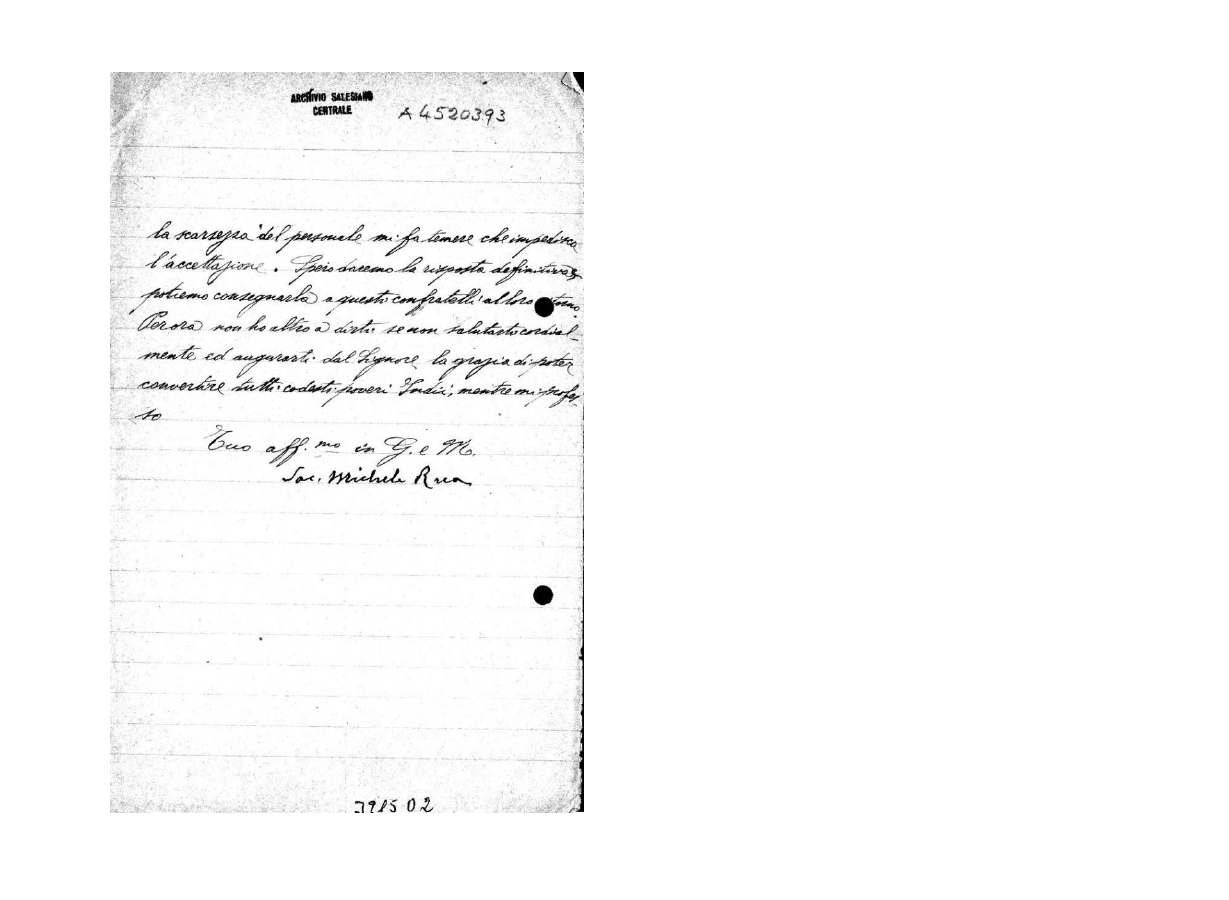 ARCHIVIO SALESIANO
CENTRALE
A4520393
la scarsezza del personale mi fa temere che impedisca
l'accettazione. Spero daremo la risposta definitiva e
potremo consegnarla a questi confratelli al loro
Per ora non ho altro a dirti se non salutarti cordial-
mente ed augurarti dal Signore la grazia di poter
convertire tutti codesti poveri Indii, mentre mi profes-
so
Tuo aff.mo in G. e M.
Sac. Michele Rua
02